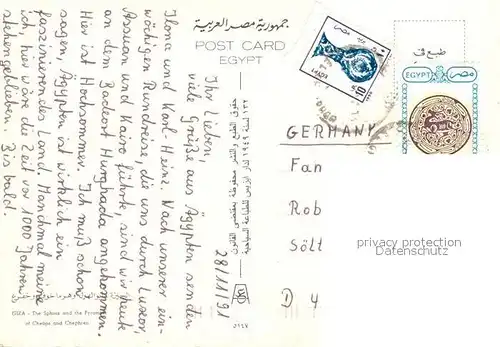 جمهورية مصر العربية
POST CARD
EGYPT
طبع في
EGYPT مصر
مصر
10
GERMANY
Fan
Rob
Sölt
D 4
privacy protection
Datenschutz
28/11/91
Ihr Lieben,
viele Grüße aus Ägypten senden
Ilona und Karl-Heinz. Nach unserer ein-
wöchigen Rundreise, die uns durch Luxor,
Assuan und Kairo führte, sind wir heute
an dem Badeort Hurghada angekommen.
Hier ist Hochsommer. Ich muß schon
sagen, Ägypten ist wirklich ein
faszinierendes Land. Manchmal meine
ich, hier wäre die Zeit vor 1000 Jahren
stehengeblieben. Bis bald.
GIZA - The Sphinx and the Pyramids
of Cheops and Chephren